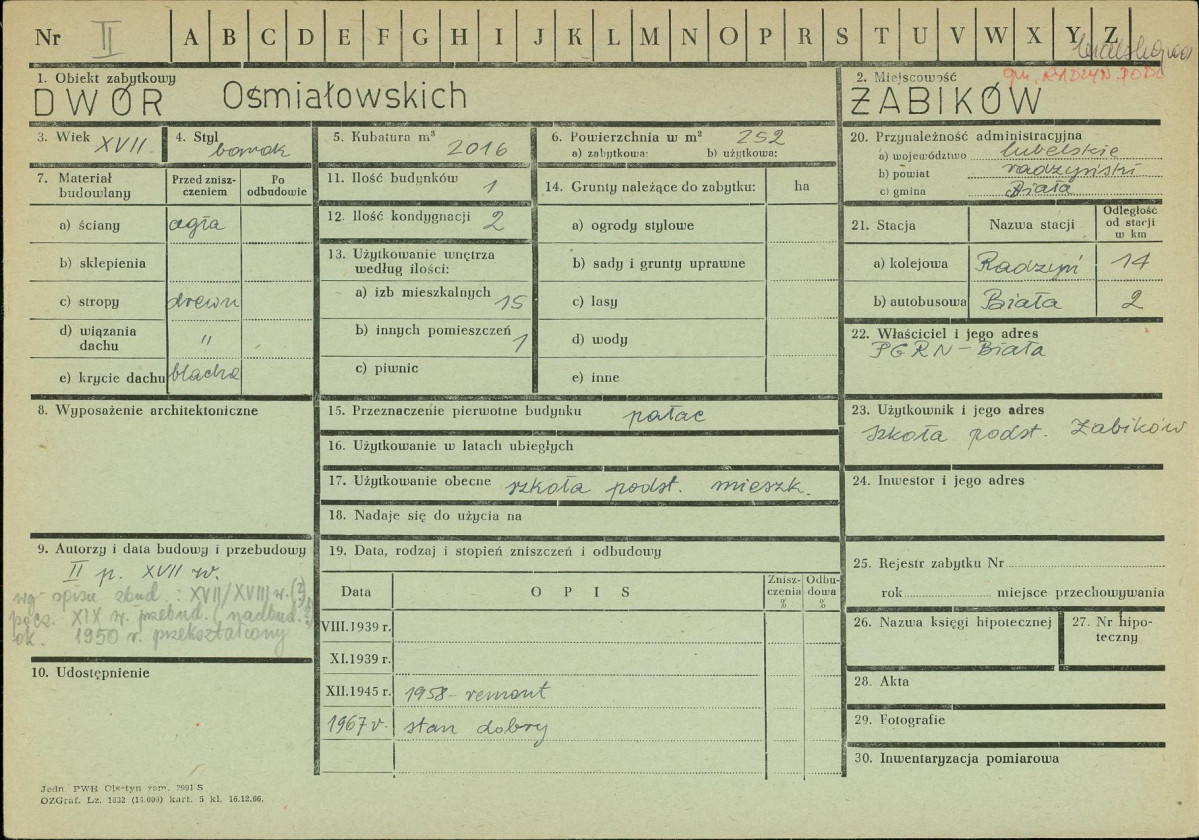 Nr II A B C D E F G H I J K L M N O P R S T U V W X Y Z
gm. RADZYŃ PODL
1. Obiekt zabytkowy
DWÓR Ośmiałowskich
2. Miejscowość
ŻABIKÓW
3. Wiek XVII
4. Styl barok
5. Kubatura m³ 2016
6. Powierzchnia w m² 252
a) zabytkowa: b) użytkowa:
7. Materiał budowlany
Przed znisz-
czeniem
Po
odbudowie
a) ściany cegła
b) sklepienia
c) stropy drewn
d) wiązania
dachu "
e) krycie dachu blacha
8. Wyposażenie architektoniczne
9. Autorzy i data budowy i przebudowy
II p. XVII w.
wg spisu zbud. : XVII/XVIII w. (?),
pocz. XIX w. przebud. (nadbud.?)
ok. 1950 r. przekształcony
10. Udostępnienie
11. Ilość budynków 1
12. Ilość kondygnacji 2
13. Użytkowanie wnętrza
według ilości:
a) izb mieszkalnych 15
b) innych pomieszczeń 1
c) piwnic
14. Grunty należące do zabytku: ha
a) ogrody stylowe
b) sady i grunty uprawne
c) lasy
d) wody
e) inne
15. Przeznaczenie pierwotne budynku pałac
16. Użytkowanie w latach ubiegłych
17. Użytkowanie obecne szkoła podst. mieszk.
18. Nadaje się do użycia na
19. Data, rodzaj i stopień zniszczeń i odbudowy
Data O P I S
Znisz-
czenia
%
Odbu-
dowa
%
VIII.1939 r.
XI.1939 r.
XII.1945 r. 1958 - remont
1967 r. stan dobry
20. Przynależność administracyjna
a) województwo lubelskie
b) powiat radzyński
c) gmina Biała
21. Stacja Nazwa stacji
Odległość
od stacji
w km
a) kolejowa Radzyń 14
b) autobusowa Biała 2
22. Właściciel i jego adres
PGRN - Biała
23. Użytkownik i jego adres
szkoła podst. Żabików
24. Inwestor i jego adres
25. Rejestr zabytku Nr
rok miejsce przechowywania
26. Nazwa księgi hipotecznej
27. Nr hipo-
teczny
28. Akta
29. Fotografie
30. Inwentaryzacja pomiarowa
Jedn. PWH Olsztyn zam. 2991 S
OZGraf. Lz. 1632 (14.000) kart. 5 kl. 16.12.66.